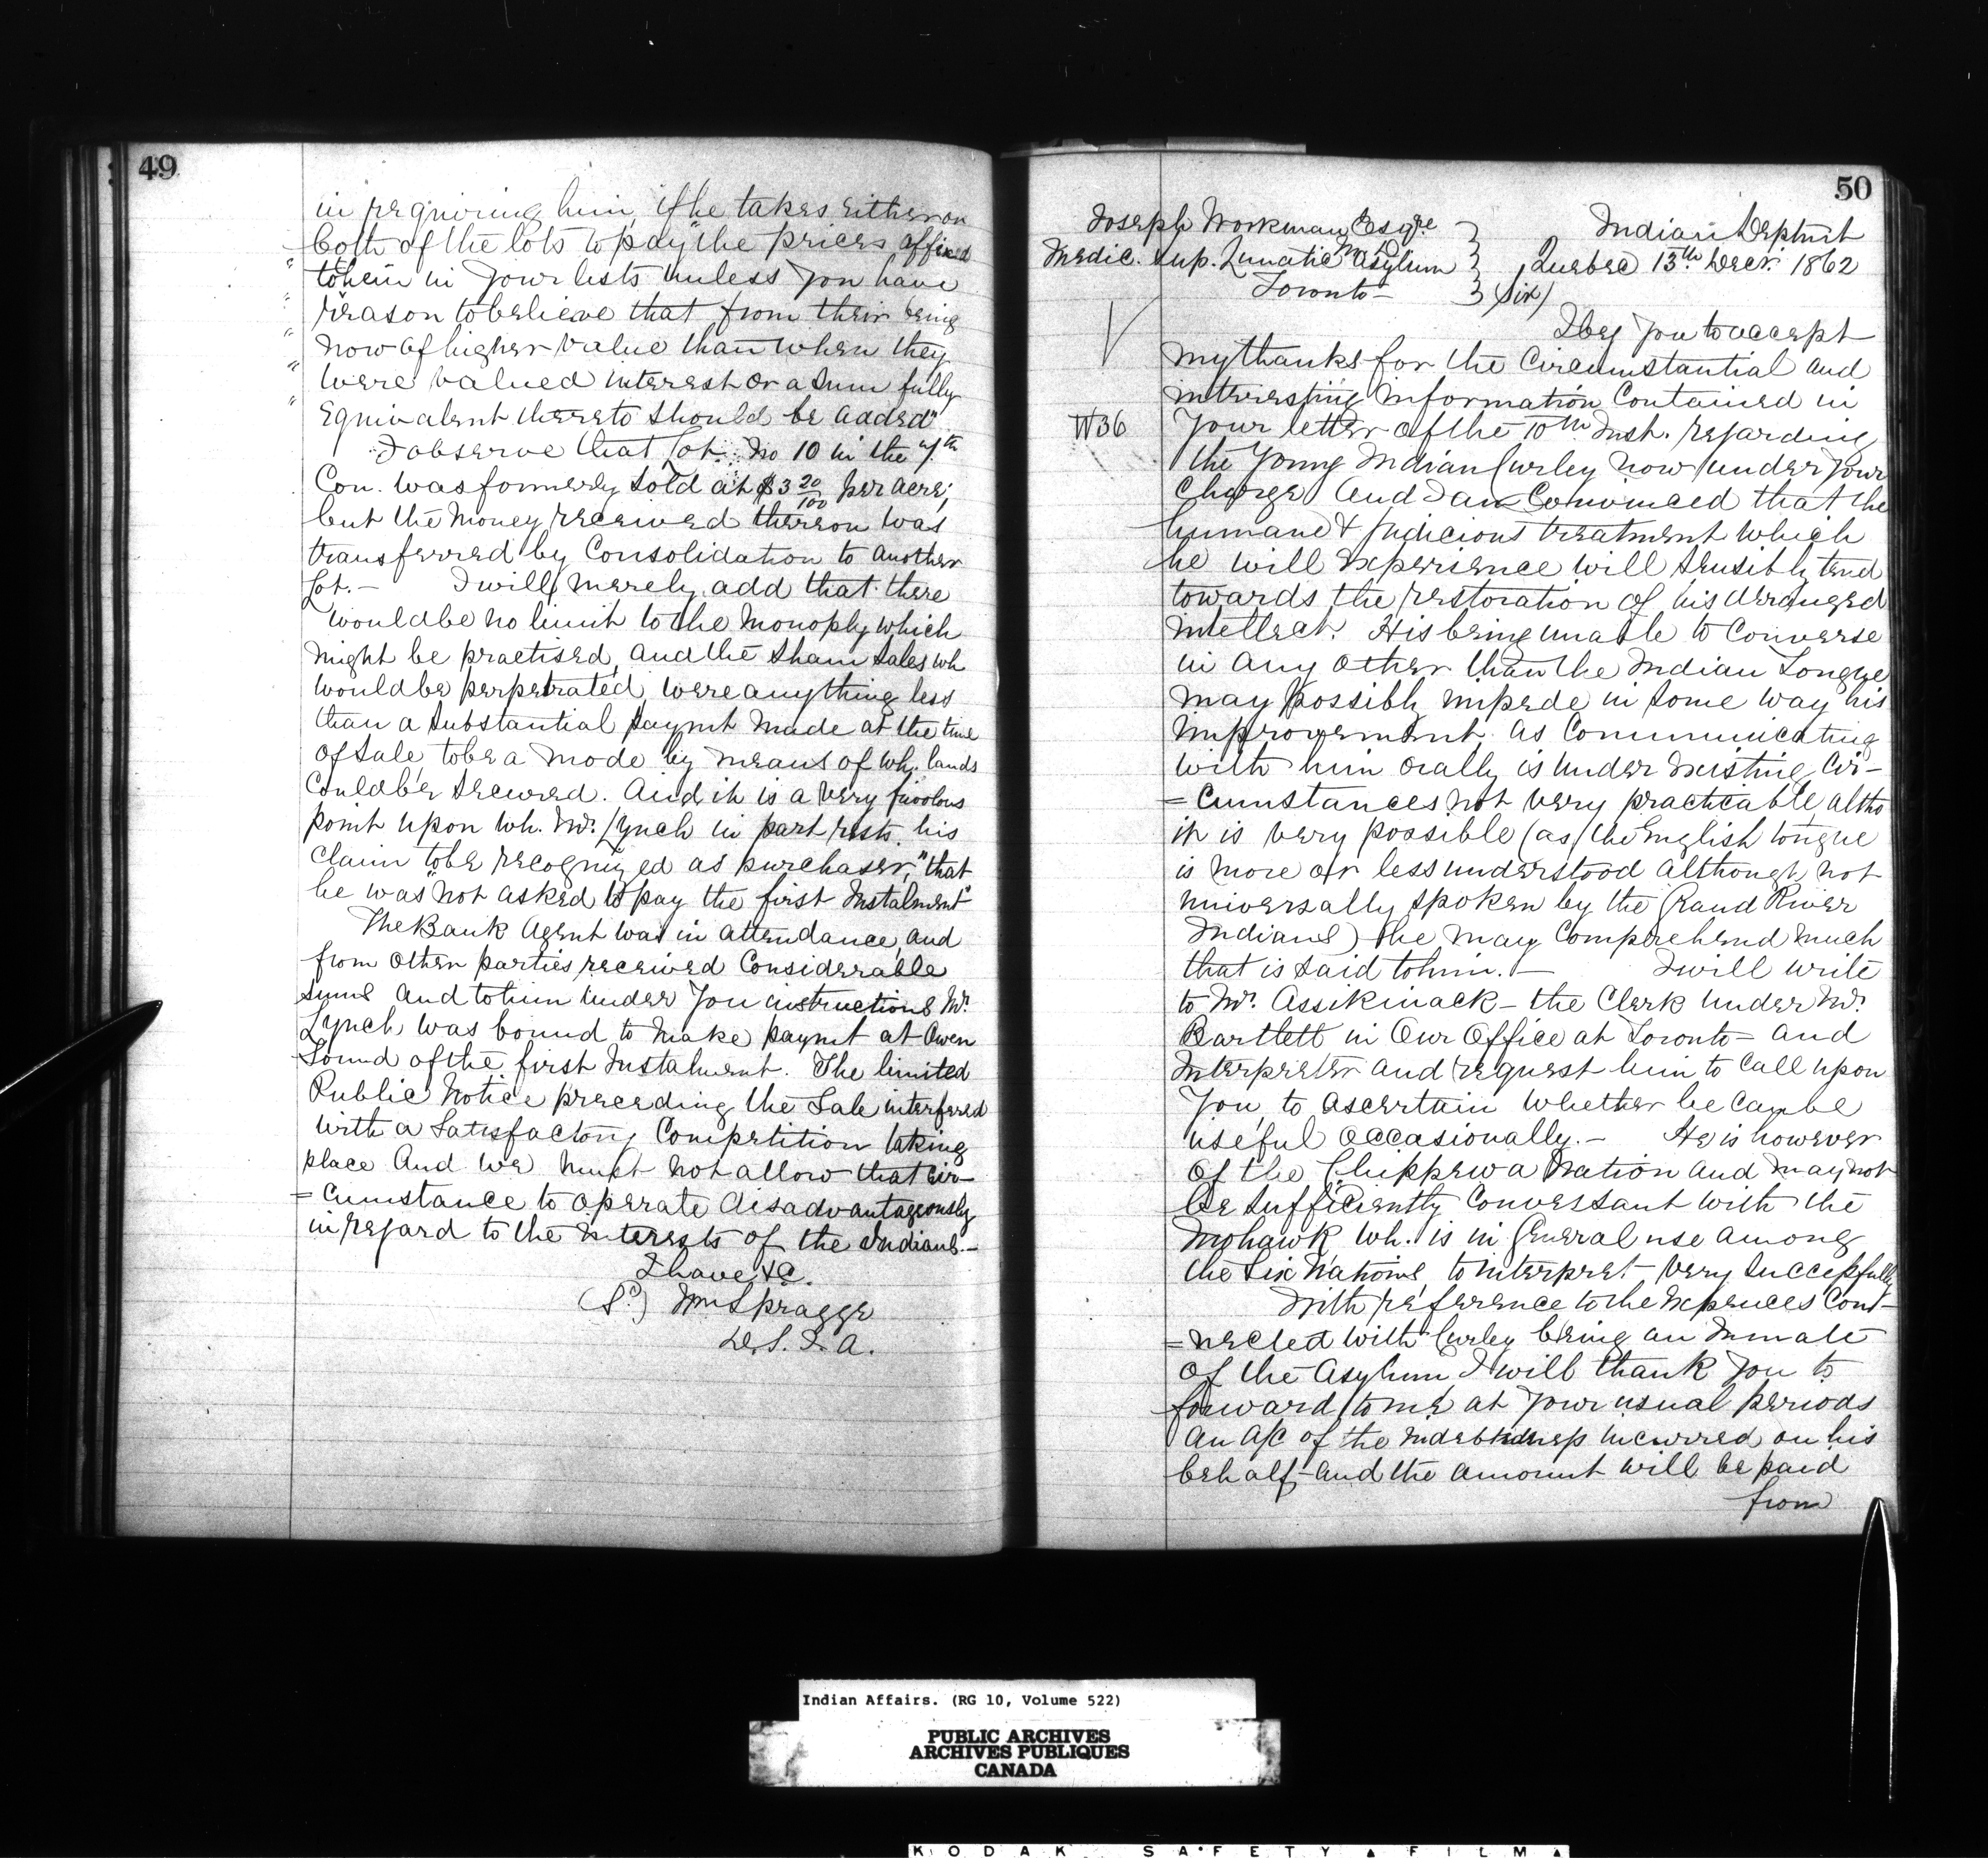 49
in requiring him, if he takes either or
both of the lots to pay "the prices affixed
" to them in your lists unless you have
" reason to believe that from their being
" now of higher value than when they
" were valued interest or a sum fully
" equivalent thereto should be added".
I observe that Lot No 10 in the 7th
Con. was formerly sold at $3 20/100 per acre;
but the money received thereon was
transferred by Consolidation to another
Lot. — I will merely add that there
would be no limit to the monoply which
might be practised, and the sham sales wh
would be perpetrated, were anything less
than a substantial paymt made at the time
of sale, to be a mode by means of wh. lands
could be secured. And it is a very frivolous
point upon wh. Mr. Lynch in part rests his
claim to be recognized as purchaser, "that
he was "not asked to pay the first Instalment"
The Bank Agent was in attendance, and
from other parties received Considerable
sums and to him under you instructions Mr.
Lynch was bound to make paymt at Owen
Sound of the first Instalment. The limited
Public Notice preceeding the Sale interfered
with a Satisfactory Competition taking
place And we must not allow that Cir-
=cumstance to operate disadvantageously
in regard to the interests of the Indians.—
I have &c.
(Sd) Wm Spragge
D.S.I.A.
50
Joseph Workman Esqre
M.D.
Medic. Sup. Lunatic Asylum
Toronto—
Indian Deptmt
Quebec 13th Decr. 1862
Sir/
I beg you to accept
my thanks for the Circumstantial and
interesting information Contained in
W36 your letter of the 10th Inst. regarding
the young Indian Curley now under your
charge And I am Convinced that the
humane & judicious treatment which
he will experience will sensibly tend
towards the restoration of his deranged
intellect. His being unable to Converse
in any other than the Indian Tongue
may possibly impede in some way his
improvement as Communicating
with him orally is under existing Cir-
=cumstances not very practicable, altho
it is very possible (as the English tongue
is more or less understood although not
universally spoken by the Grand River
Indians) he may Comprehend much
that is said to him. — I will write
to Mr. Assikinack — the Clerk under Mr.
Bartlett in Our Office at Toronto — and
Interpreter and request him to call upon
you, to ascertain whether he can be
useful occasionally. — He is however
of the Chippewa Nation and may not
be sufficiently conversant with the
Mohawk wh. is in general use among
the Six Nations, to interpret very successfully
With reference to the expences Con-
=nected with Curley being an Inmate
of the Asylum I will thank you to
forward to me at your usual periods
an a/c of the indebtedness incurred on his
behalf, and the amount will be paid
from
Indian Affairs. (RG 10, Volume 522)
PUBLIC ARCHIVES
ARCHIVES PUBLIQUES
CANADA
KODAK SAFETY FILM